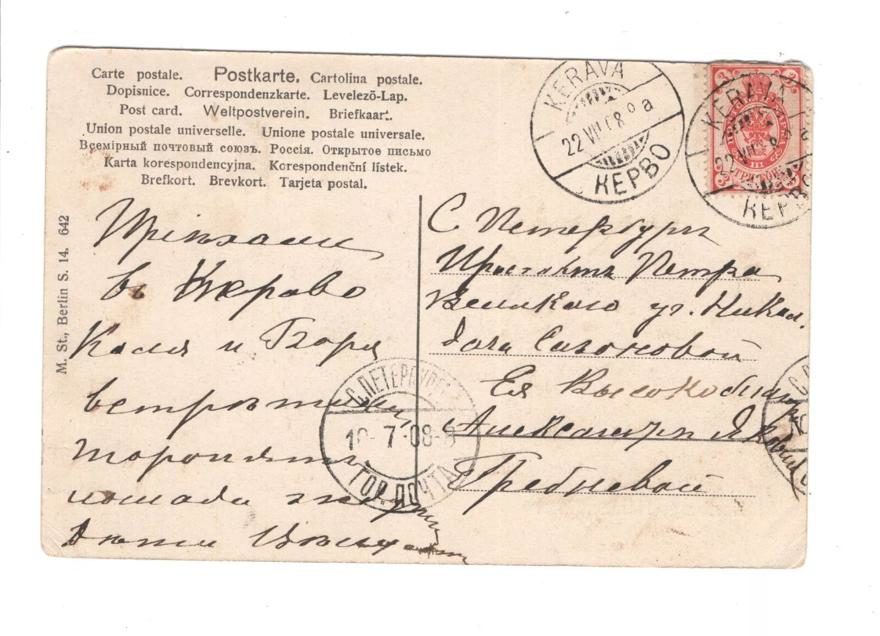 Carte postale. Postkarte. Cartolina postale.
Dopisnice. Correspondenzkarte. Levelező-Lap.
Post card. Weltpostverein. Briefkaart.
Union postale universelle. Unione postale universale.
Всемірный почтовый союзъ. Россія. Открытое письмо
Karta korespondencyjna. Korespondenční lístek.
Brefkort. Brevkort. Tarjeta postal.
M. St., Berlin S. 14. 642
KERAVA
22 VII 08 8 a
КЕРВО
KERAVA
22 VII 08
КЕРВО
3 3
III
3 3
Пріѣхали
въ Керово
Коля и Боря
встрѣтили
торопятъ
лошада
С Петербургъ
Проспектъ Петра
Великаго уг. Никол.
дача Сазоновой
Ея Высокоблаг
Александрѣ Яковл
Гребневой
С.ПЕТЕРБУРГЪ
10-7-08-8
ГОР. ПОЧТА